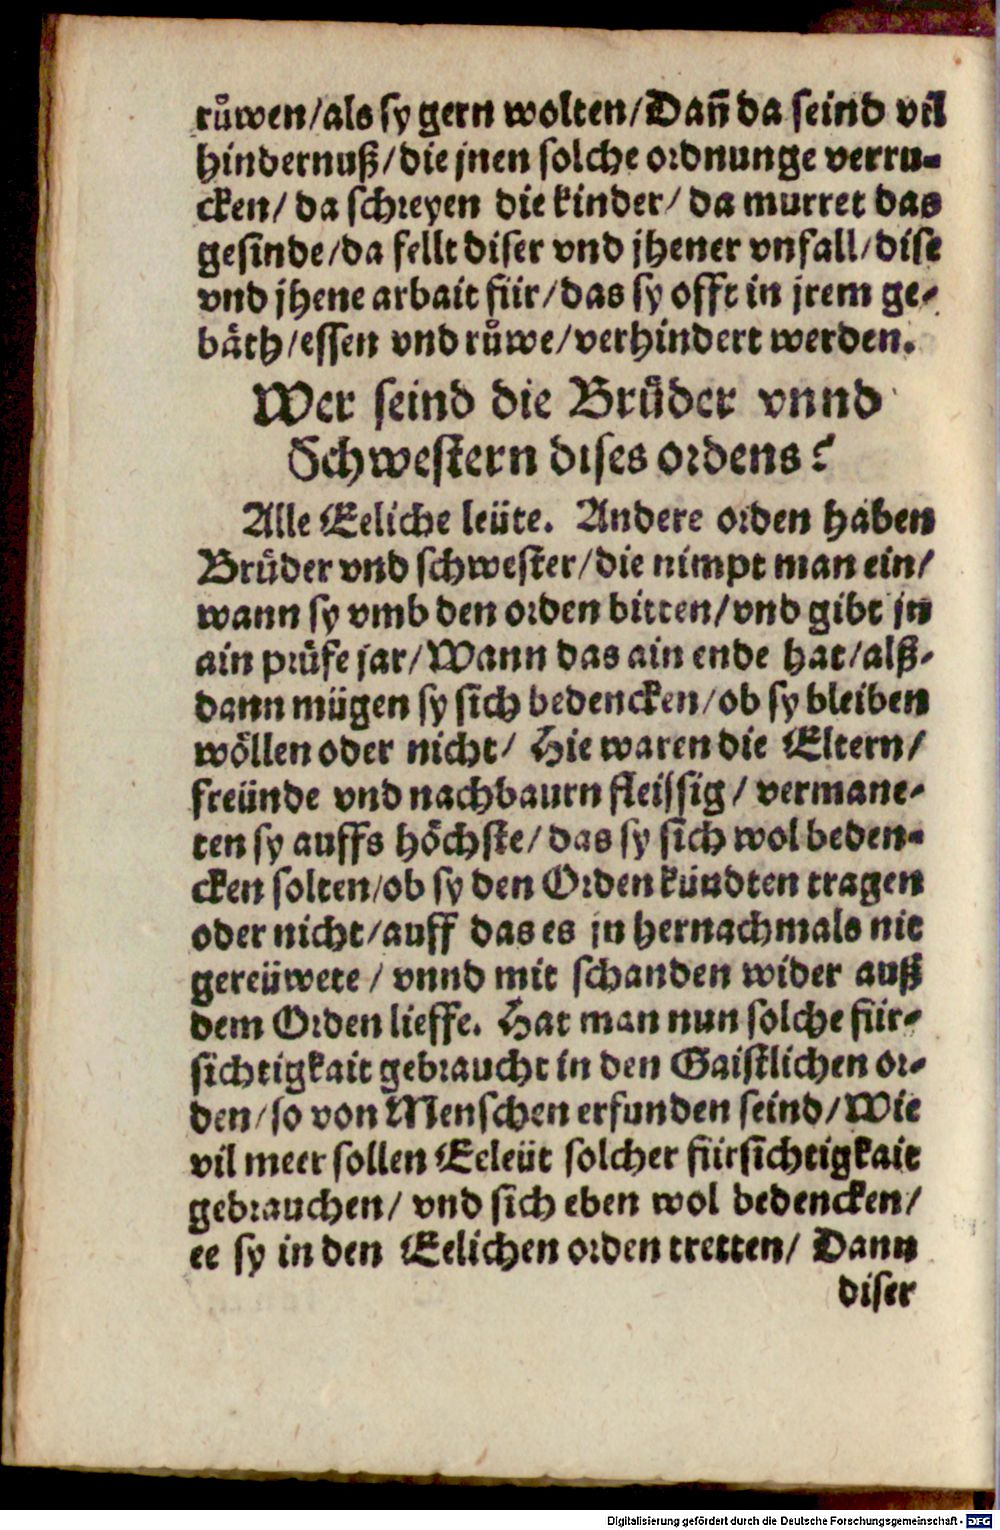 růwen/als sy gern wolten/Dañ da seind vil
hindernuß/die jnen solche ordnunge verru-
cken/ da schreyen die kinder/ da murret das
gesinde/da fellt diser vnd jhener vnfall/dise
vnd jhene arbait für/das sy offt in jrem ge-
bäth/essen vnd růwe/verhindert werden.
Wer seind die Brůder vnnd
Schwestern dises ordens?
Alle Eeliche leüte. Andere orden haben
Brůder vnd schwester/die nimpt man ein/
wann sy vmb den orden bitten/vnd gibt jn
ain průfe jar/Wann das ain ende hat/alß-
dann mügen sy sich bedencken/ob sy bleiben
wöllen oder nicht/ Hie waren die Eltern/
freünde vnd nachbaurn fleissig/ vermane-
ten sy auffs höchste/das sy sich wol beden-
cken solten/ob sy den Orden kündten tragen
oder nicht/auff das es jn hernachmals nit
gereüwete/ vnnd mit schanden wider auß
dem Orden lieffe. Hat man nun solche für-
sichtigkait gebraucht in den Gaistlichen or-
den/so von Menschen erfunden seind/Wie
vil meer sollen Eeleüt solcher fürsichtigkait
gebrauchen/ vnd sich eben wol bedencken/
ee sy in den Eelichen orden tretten/ Dann
diser
Digitalisierung gefördert durch die Deutsche Forschungsgemeinschaft - DFG